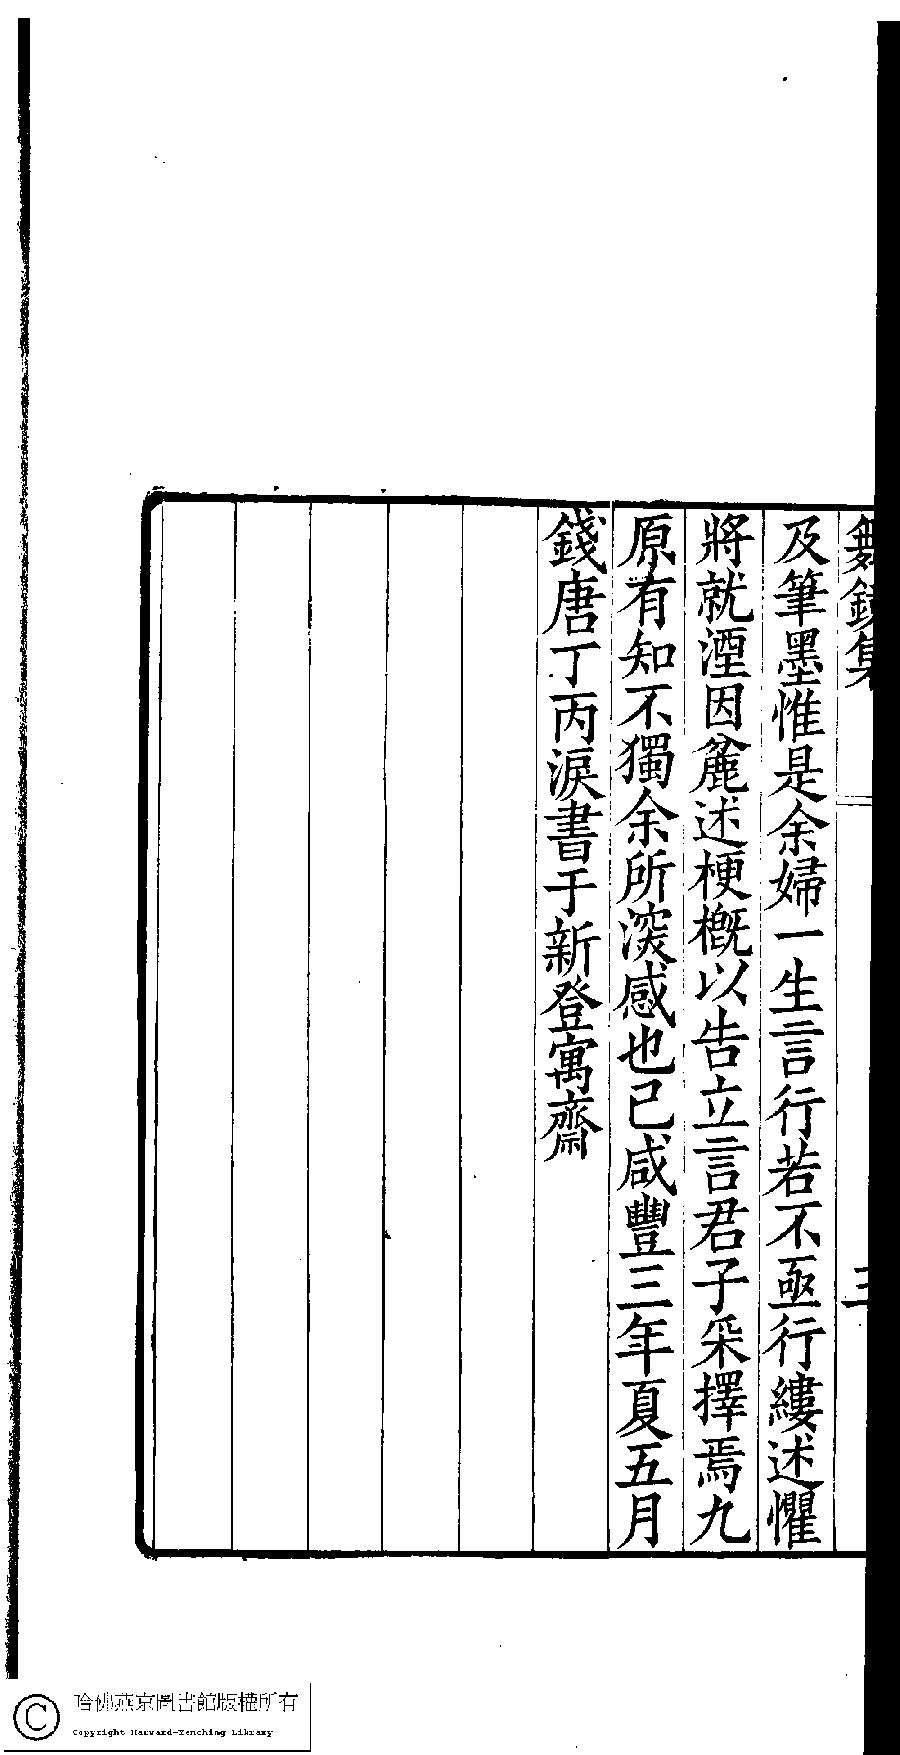 舞鏡集
三
及筆墨惟是余婦一生言行若不亟行縷述懼
將就湮因麄述梗槪以告立言君子采擇焉九
原有知不獨余所深感也已咸豐三年夏五月
錢唐丁丙淚書于新登寓齋
哈佛燕京圖書館版權所有
Copyright Harvard-Yenching Library